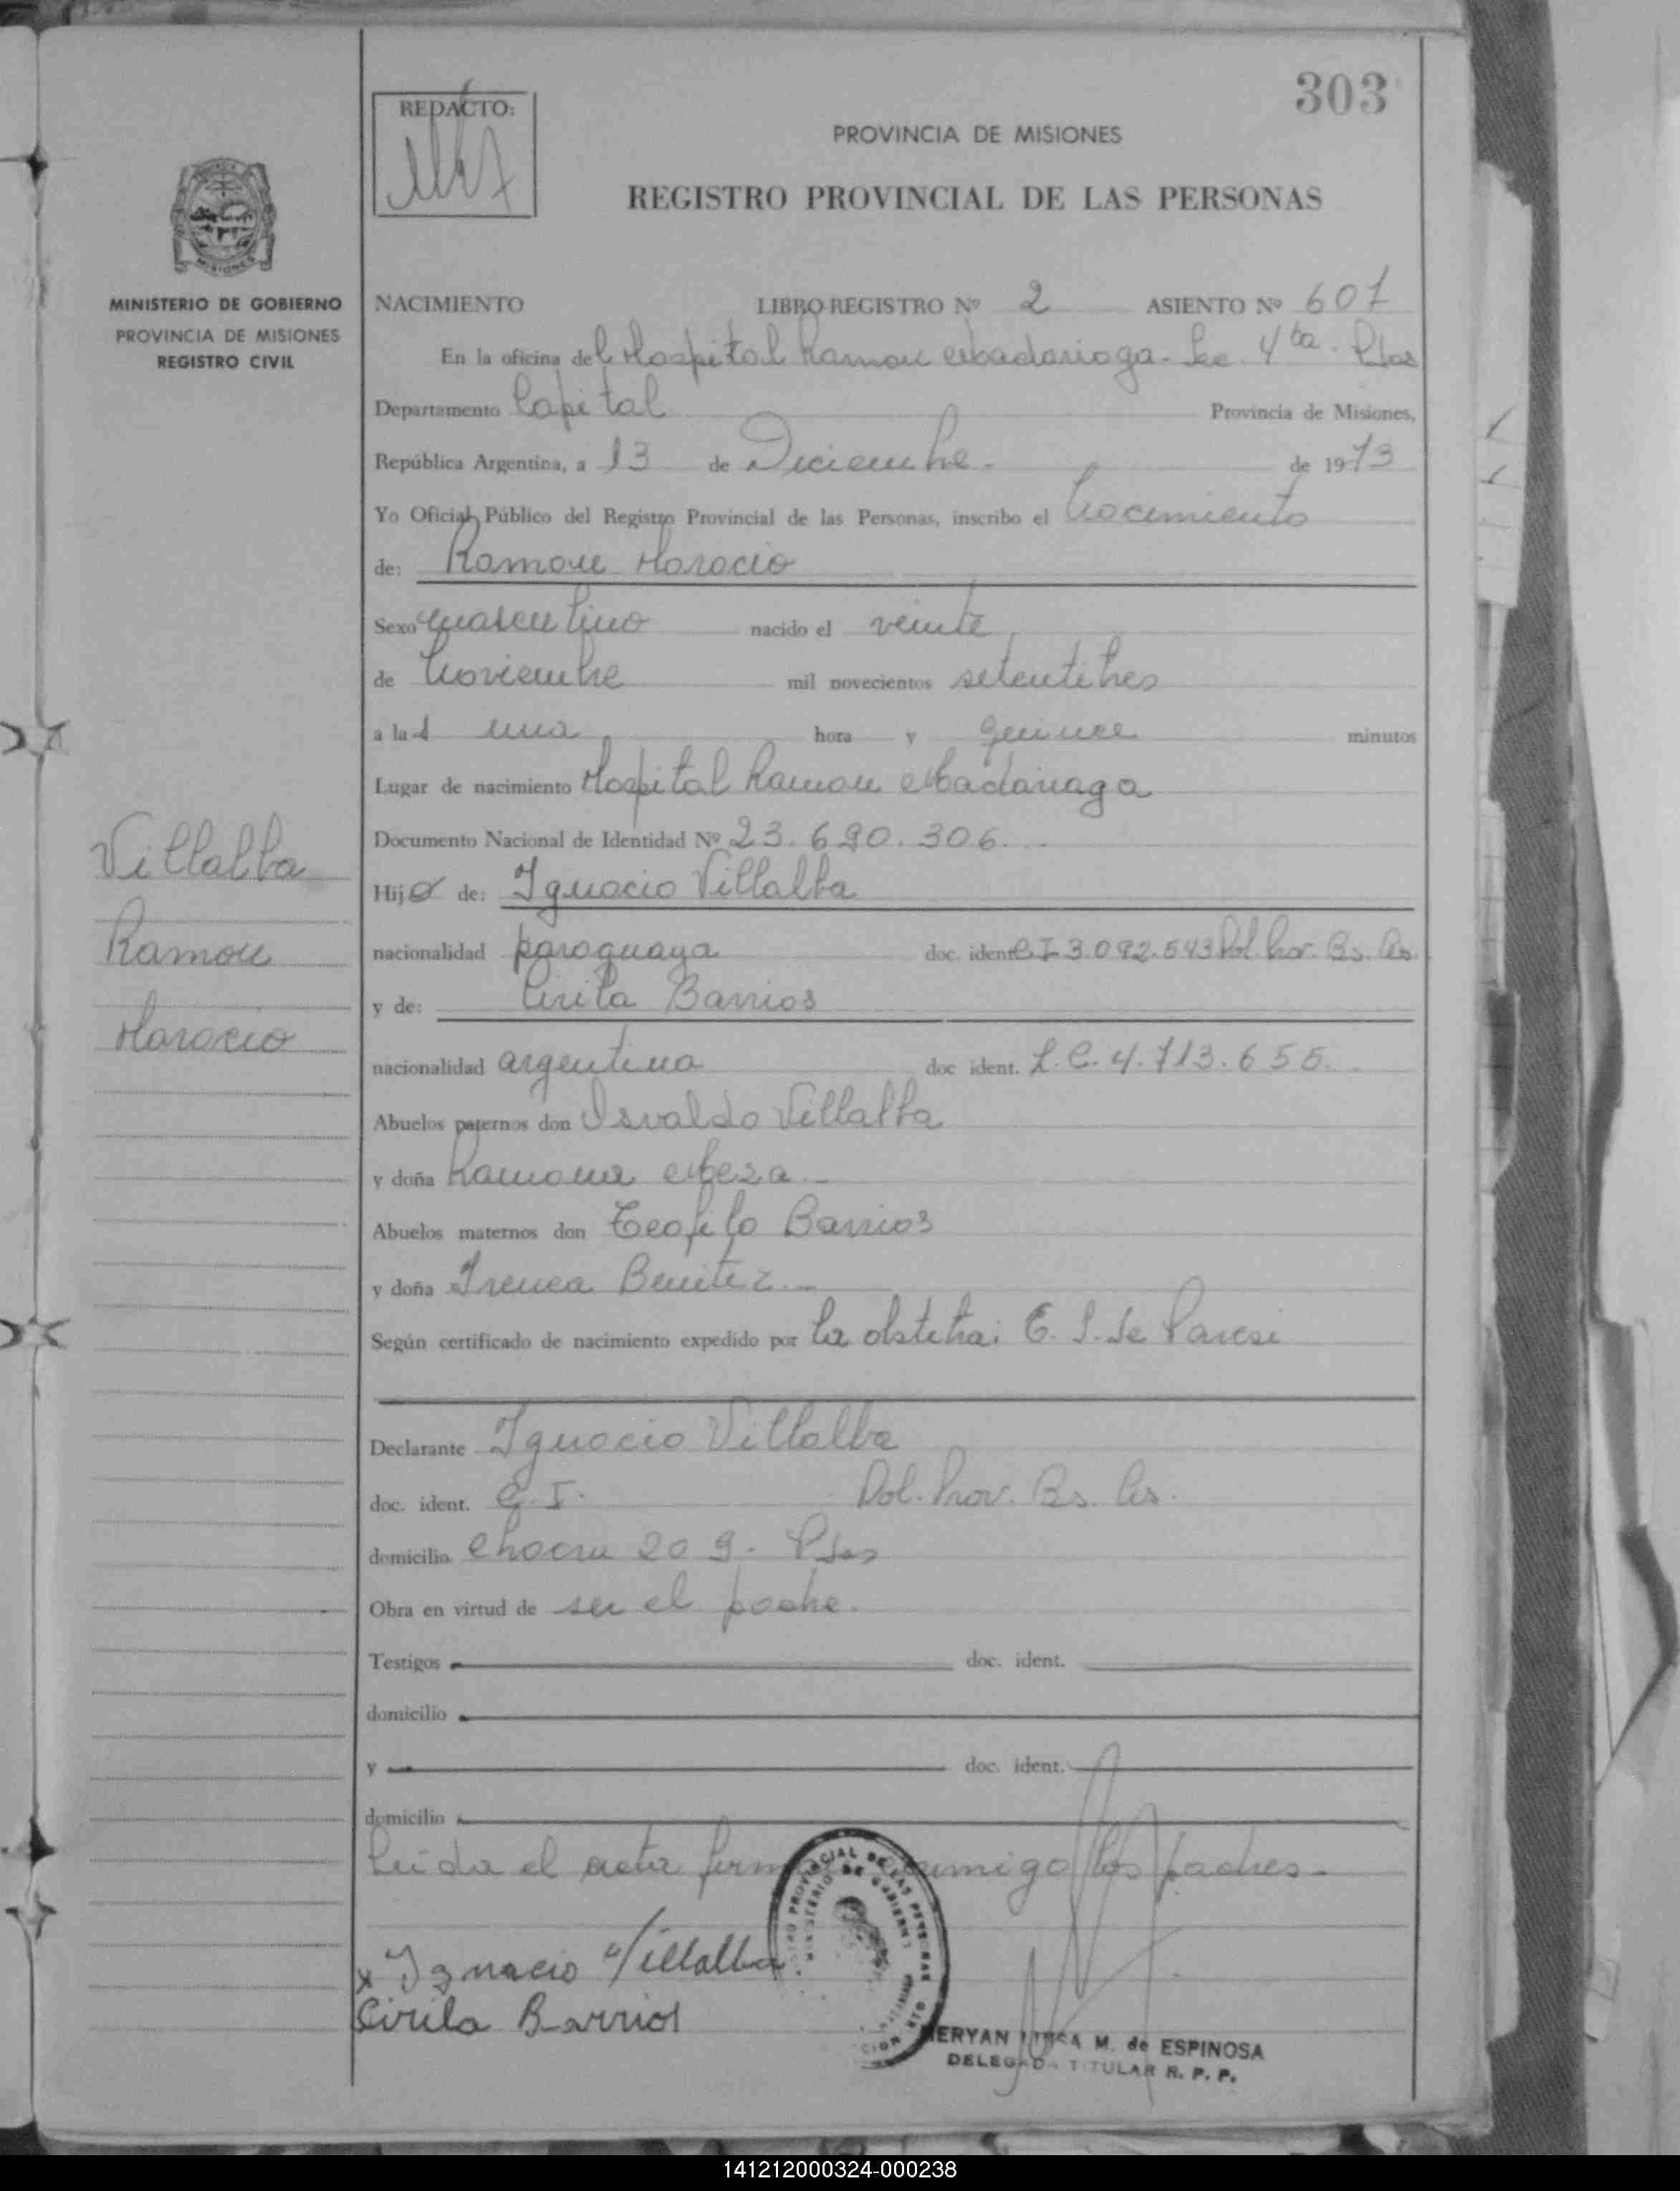 303
REDACTO:
PROVINCIA DE MISIONES
REGISTRO PROVINCIAL DE LAS PERSONAS
MINISTERIO DE GOBIERNO
PROVINCIA DE MISIONES
REGISTRO CIVIL
Villalba
Ramon
Horacio
NACIMIENTO LIBRO-REGISTRO Nº 2 ASIENTO Nº 607
En la oficina del Hospital Ramon Madariaga. Sec. 4ta. Pdas
Departamento Capital Provincia de Misiones,
República Argentina, a 13 de Diciembre. de 1973
Yo Oficial Público del Registro Provincial de las Personas, inscribo el Nacimiento
de: Ramon Horacio
Sexo masculino nacido el veinte
de Noviembre mil novecientos setentitres
a la una hora y quince minutos
Lugar de nacimiento Hospital Ramon Madariaga
Documento Nacional de Identidad Nº 23.690.306.
Hijo de: Ignacio Villalba
nacionalidad paraguaya doc. ident. C.I. 3.092.543 Pol. Prov. Bs. As.
y de: Cirila Barrios
nacionalidad argentina doc ident. L.C. 4.713.655.
Abuelos paternos don Osvaldo Villalba
y doña Ramona Meza
Abuelos maternos don Teofilo Barrios
y doña Irenea Benitez
Según certificado de nacimiento expedido por la obstetra: E. S. de Paresi
Declarante Ignacio Villalba
doc. ident. C.I. Pol. Prov. Bs. As.
domicilio Chacra 209. Pdas
Obra en virtud de ser el padre.
Testigos doc. ident.
domicilio
y doc. ident.
domicilio
Leida el acta firman conmigo los padres.
x Ignacio Villalba
Cirila Barrios
M. de ESPINOSA
DELEGADA TITULAR R. P. P.
141212000324-000238